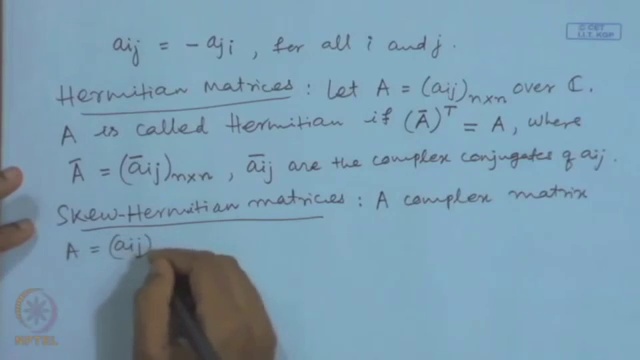 © CET
I.I.T. KGP
aij = - aji , for all i and j.
Hermitian Matrices : Let A = (aij)n×n over ℂ.
A is called Hermitian if (Ā)ᵀ = A, where
Ā = (āij)n×n , āij are the complex conjugates of aij.
Skew-Hermitian matrices : A complex matrix
A = (aij)
NPTEL